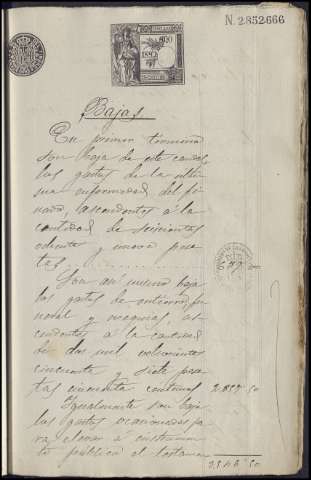 N. 2.852.666
1892
Bajas.
En primer termino
son baja de este caudal
los gastos de la ultima
enfermedad del finado,
ascendentes á la
cantidad de seiscientas
ochenta y nueve pesetas
Son asi mismo baja
los gastos de entierro, funeral
y exequias, ascendentes
á la cantidad
de dos mil ochocientas
cincuenta y siete pesetas
cincuenta centimos 2.857 50
Igualmente son baja
los gastos ocasionados para
elevar a instrumento
publico el testamen
3.546 50